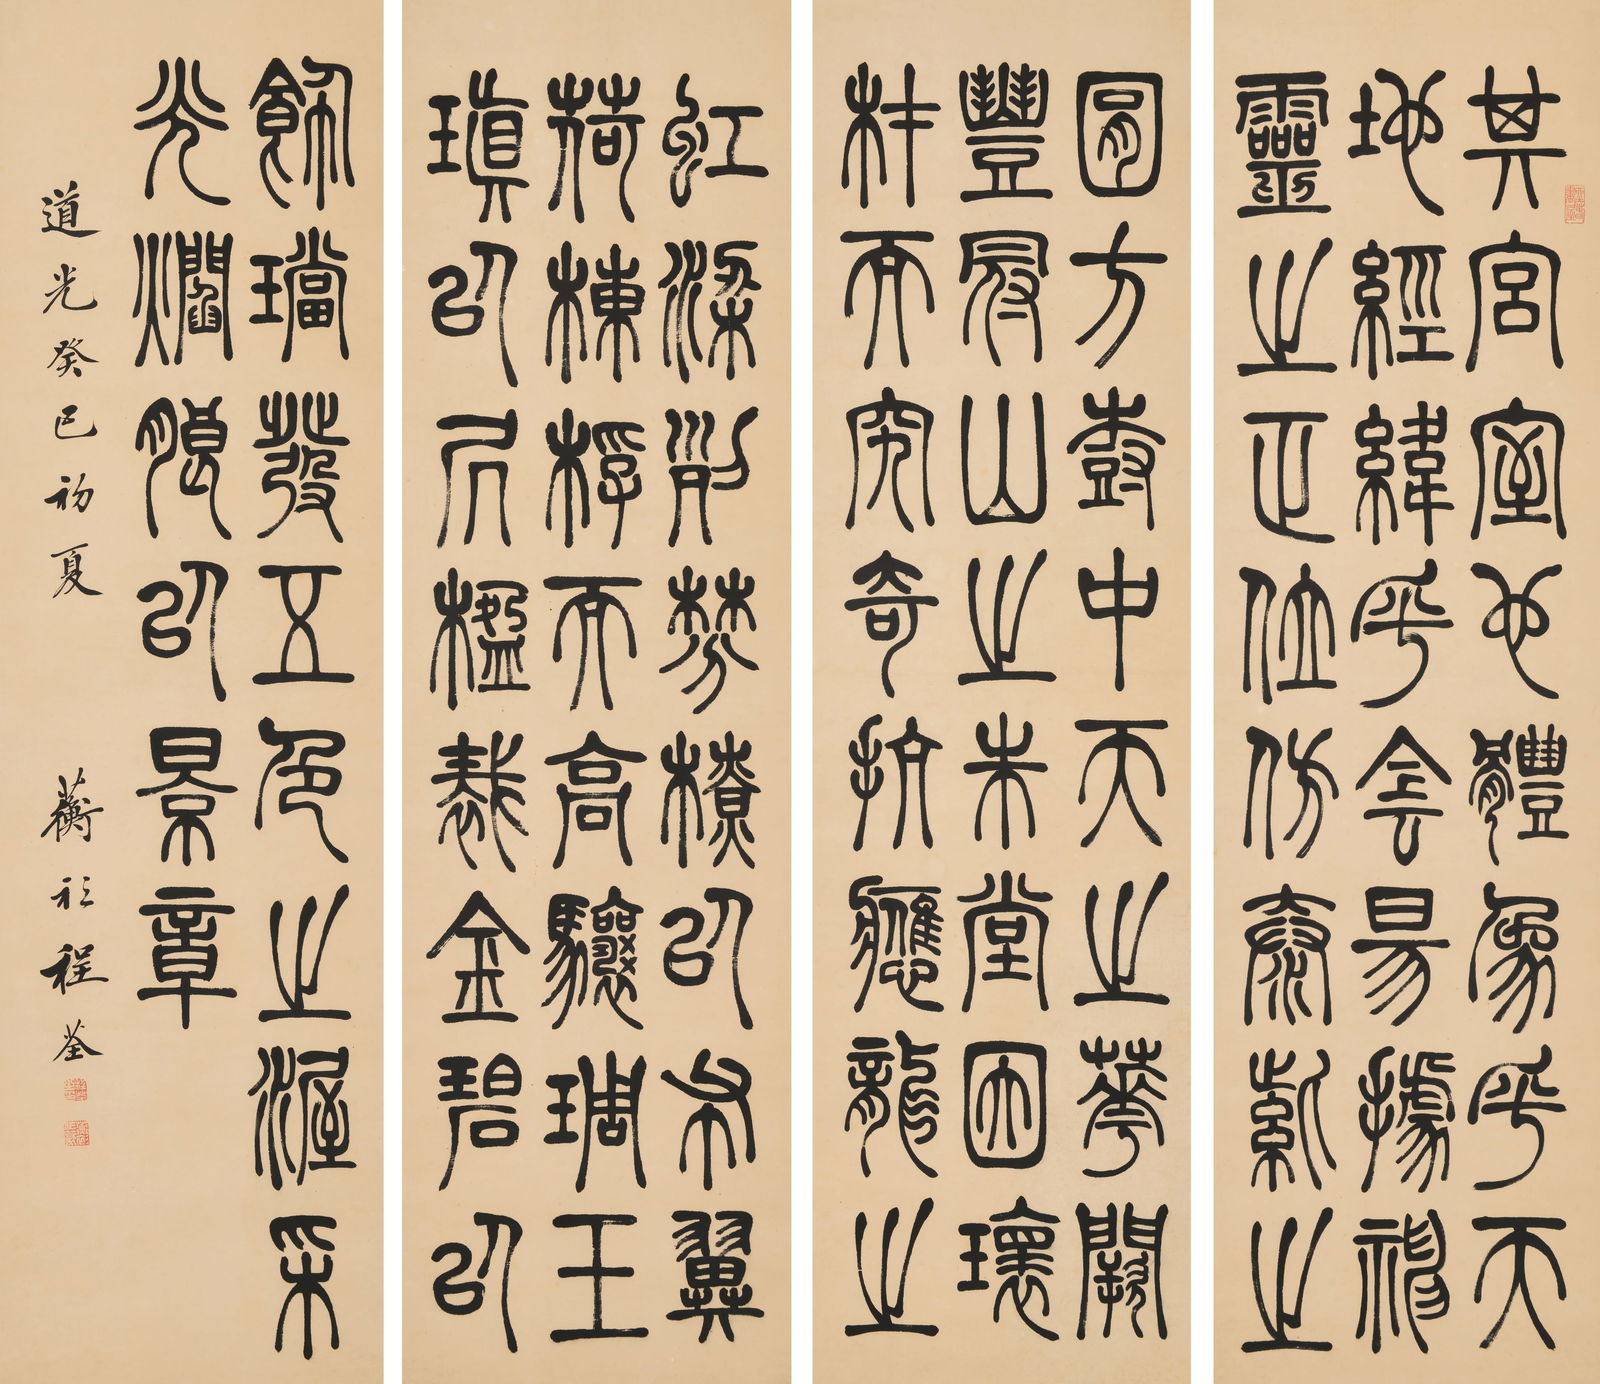 其宮室也體象乎天
地經緯乎侌昜據神
靈之正位仿泰紫之
圓方尌中天之華闕
豐冠山之朱堂因瓌
材而究奇抗應龍之
虹梁列棼橑以布翼
荷棟桴而高驤琱玉
瑱以凥楹裁金碧以
飾璫發五色之渥采
光爛朗以景章
道光癸巳初夏 蘅衫程荃